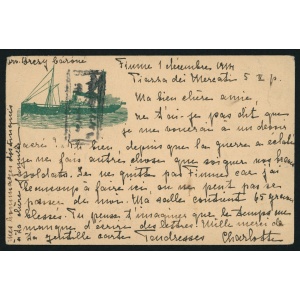 Fiume 1 décembre 1914
Piazza dei Mercati 5 II p.
Ma bien chère amie,
ne t'ai-je pas dit que
je me vouerai à un devoir
bien, depuis que la guerre a éclaté
je ne fais autre chose que soigner nos
soldats. Je ne quitte pas Fiume car j'ai
beaucoup à faire ici, on ne peut pas se
passer de moi. Ma salle contient 65 grands
blessés. Tu penses d'imaginer que le temps me
manque d'écrire des lettres. Mille merci de
ta gentille carte Tendresses Charlotte